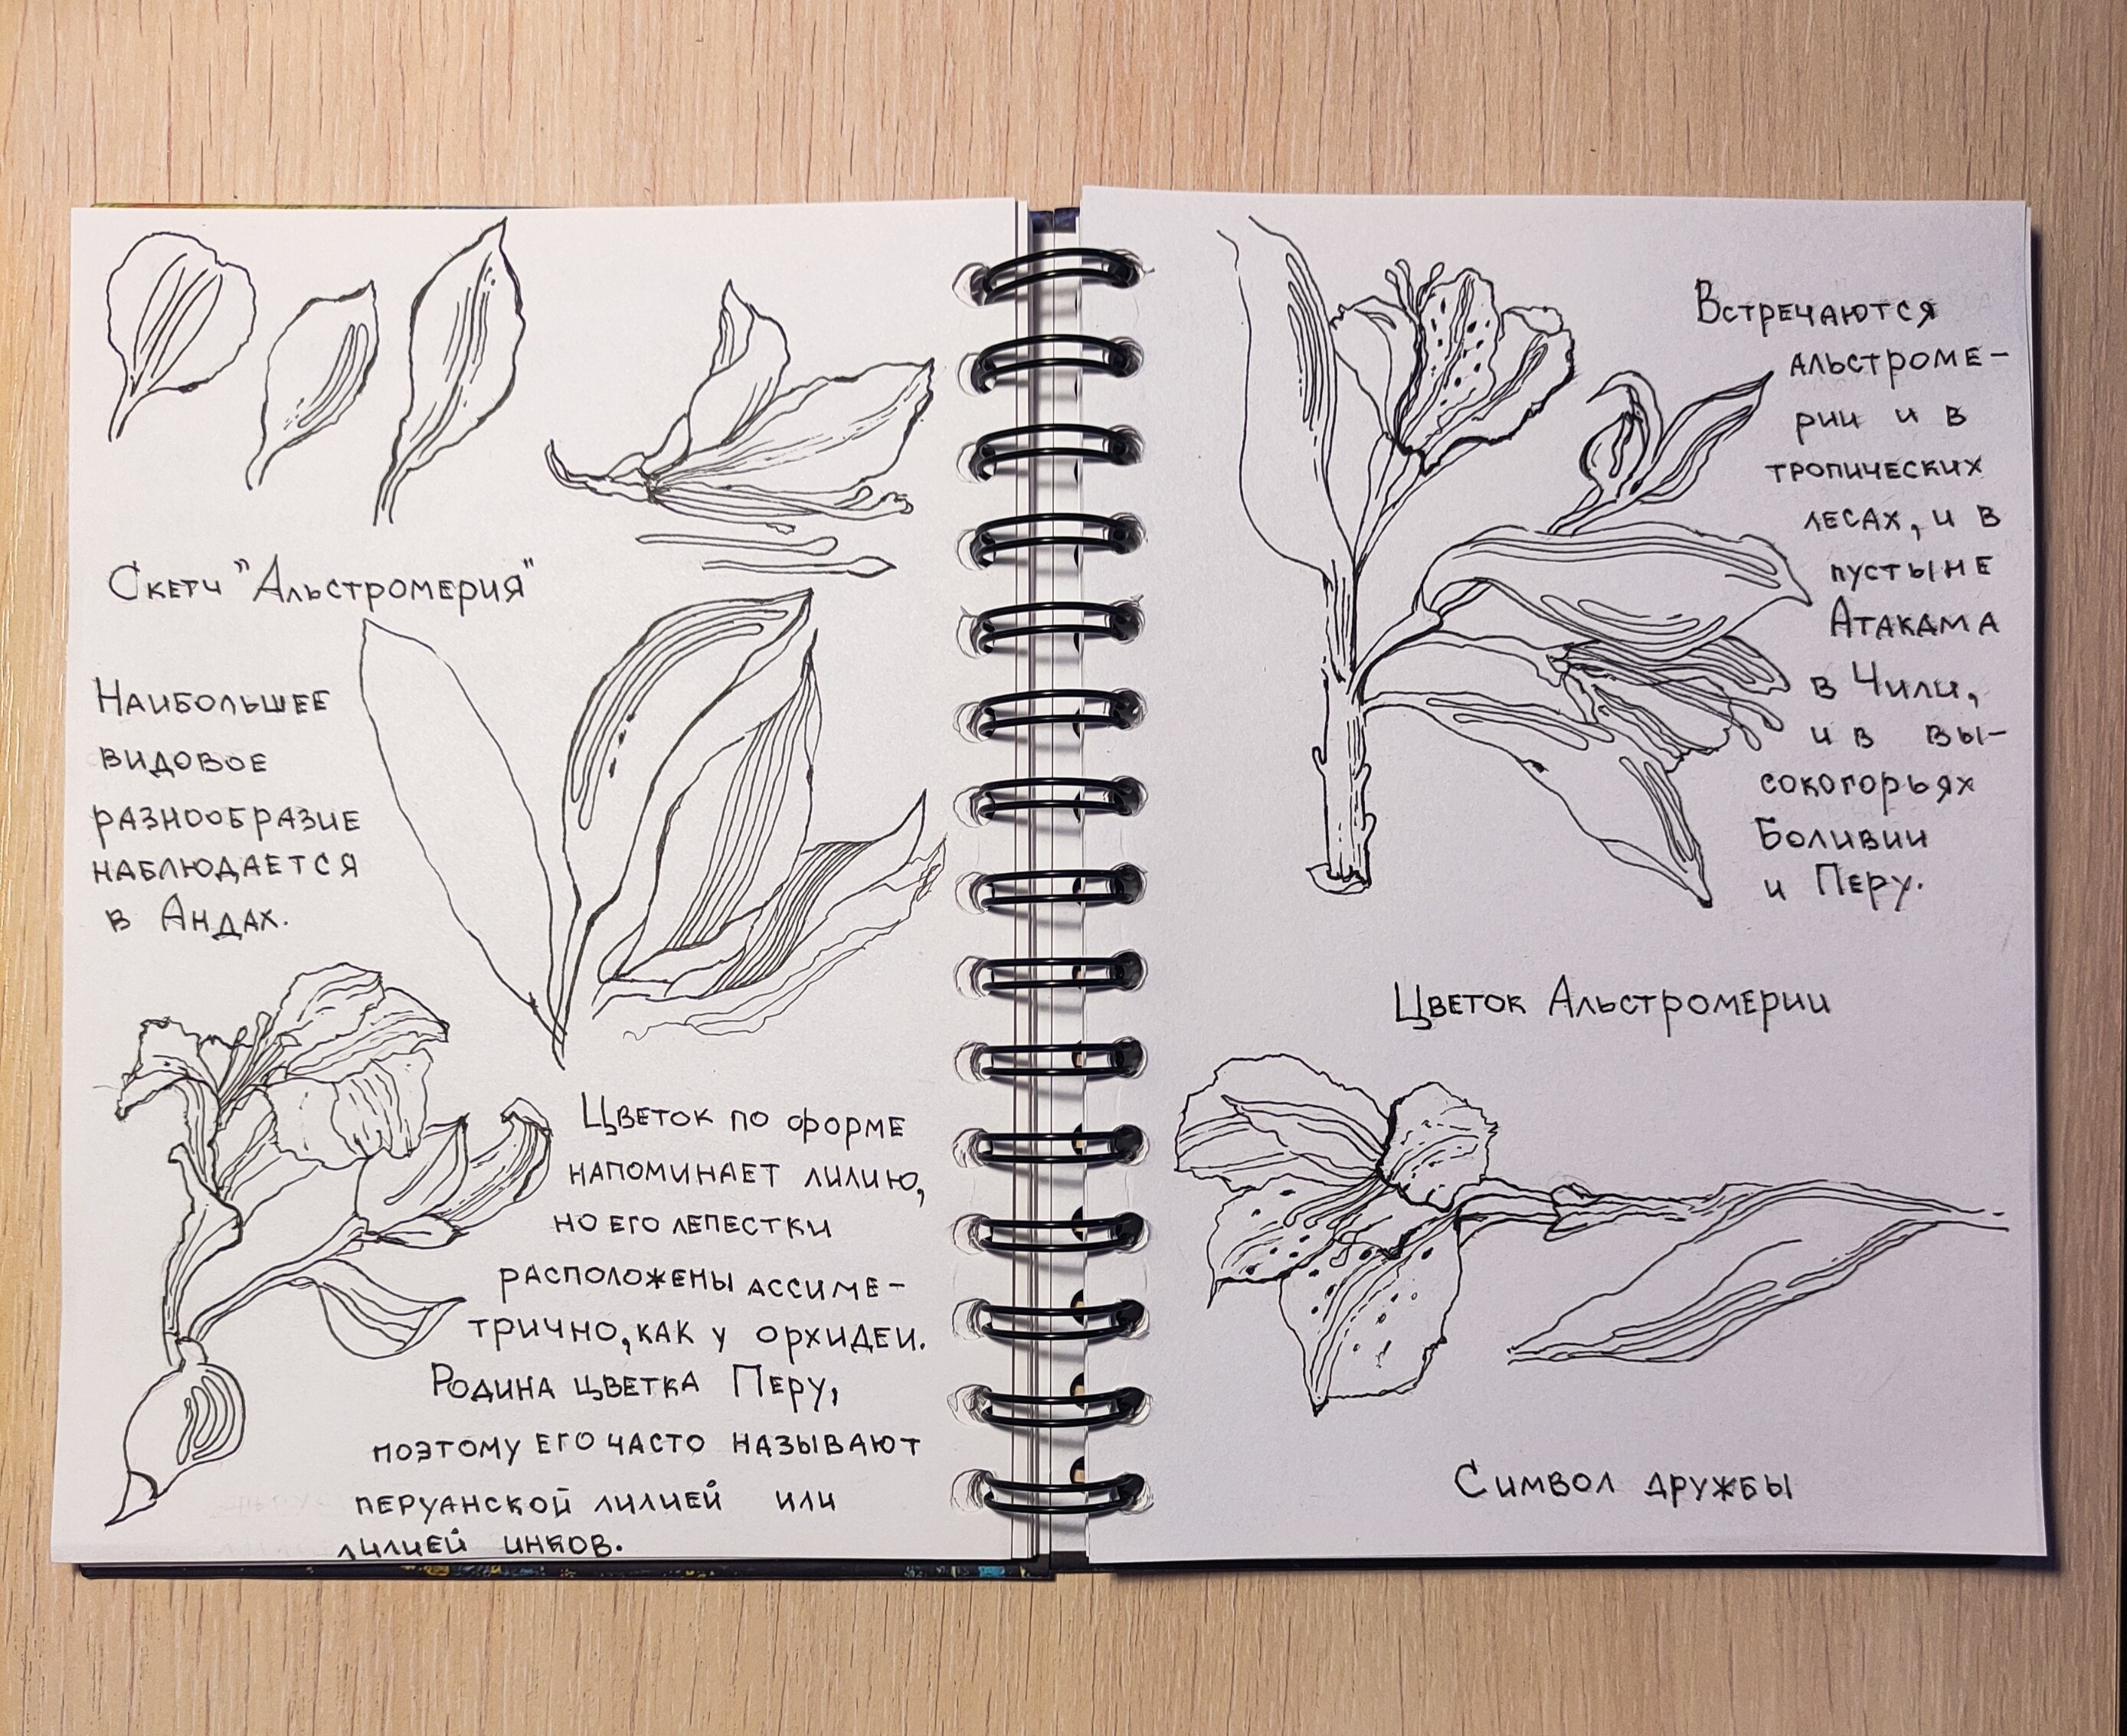 Скетч "Альстромерия"
Наибольшее
видовое
разнообразие
наблюдается
в Андах.
Цветок по форме
напоминает лилию,
но его лепестки
расположены ассиме-
трично, как у орхидеи.
Родина цветка Перу,
поэтому его часто называют
перуанской лилией или
лилией инков.
Встречаются
альстроме-
рии и в
тропических
лесах, и в
пустыне
Атакама
в Чили,
и в вы-
сокогорьях
Боливии
и Перу.
Цветок Альстромерии
Символ дружбы